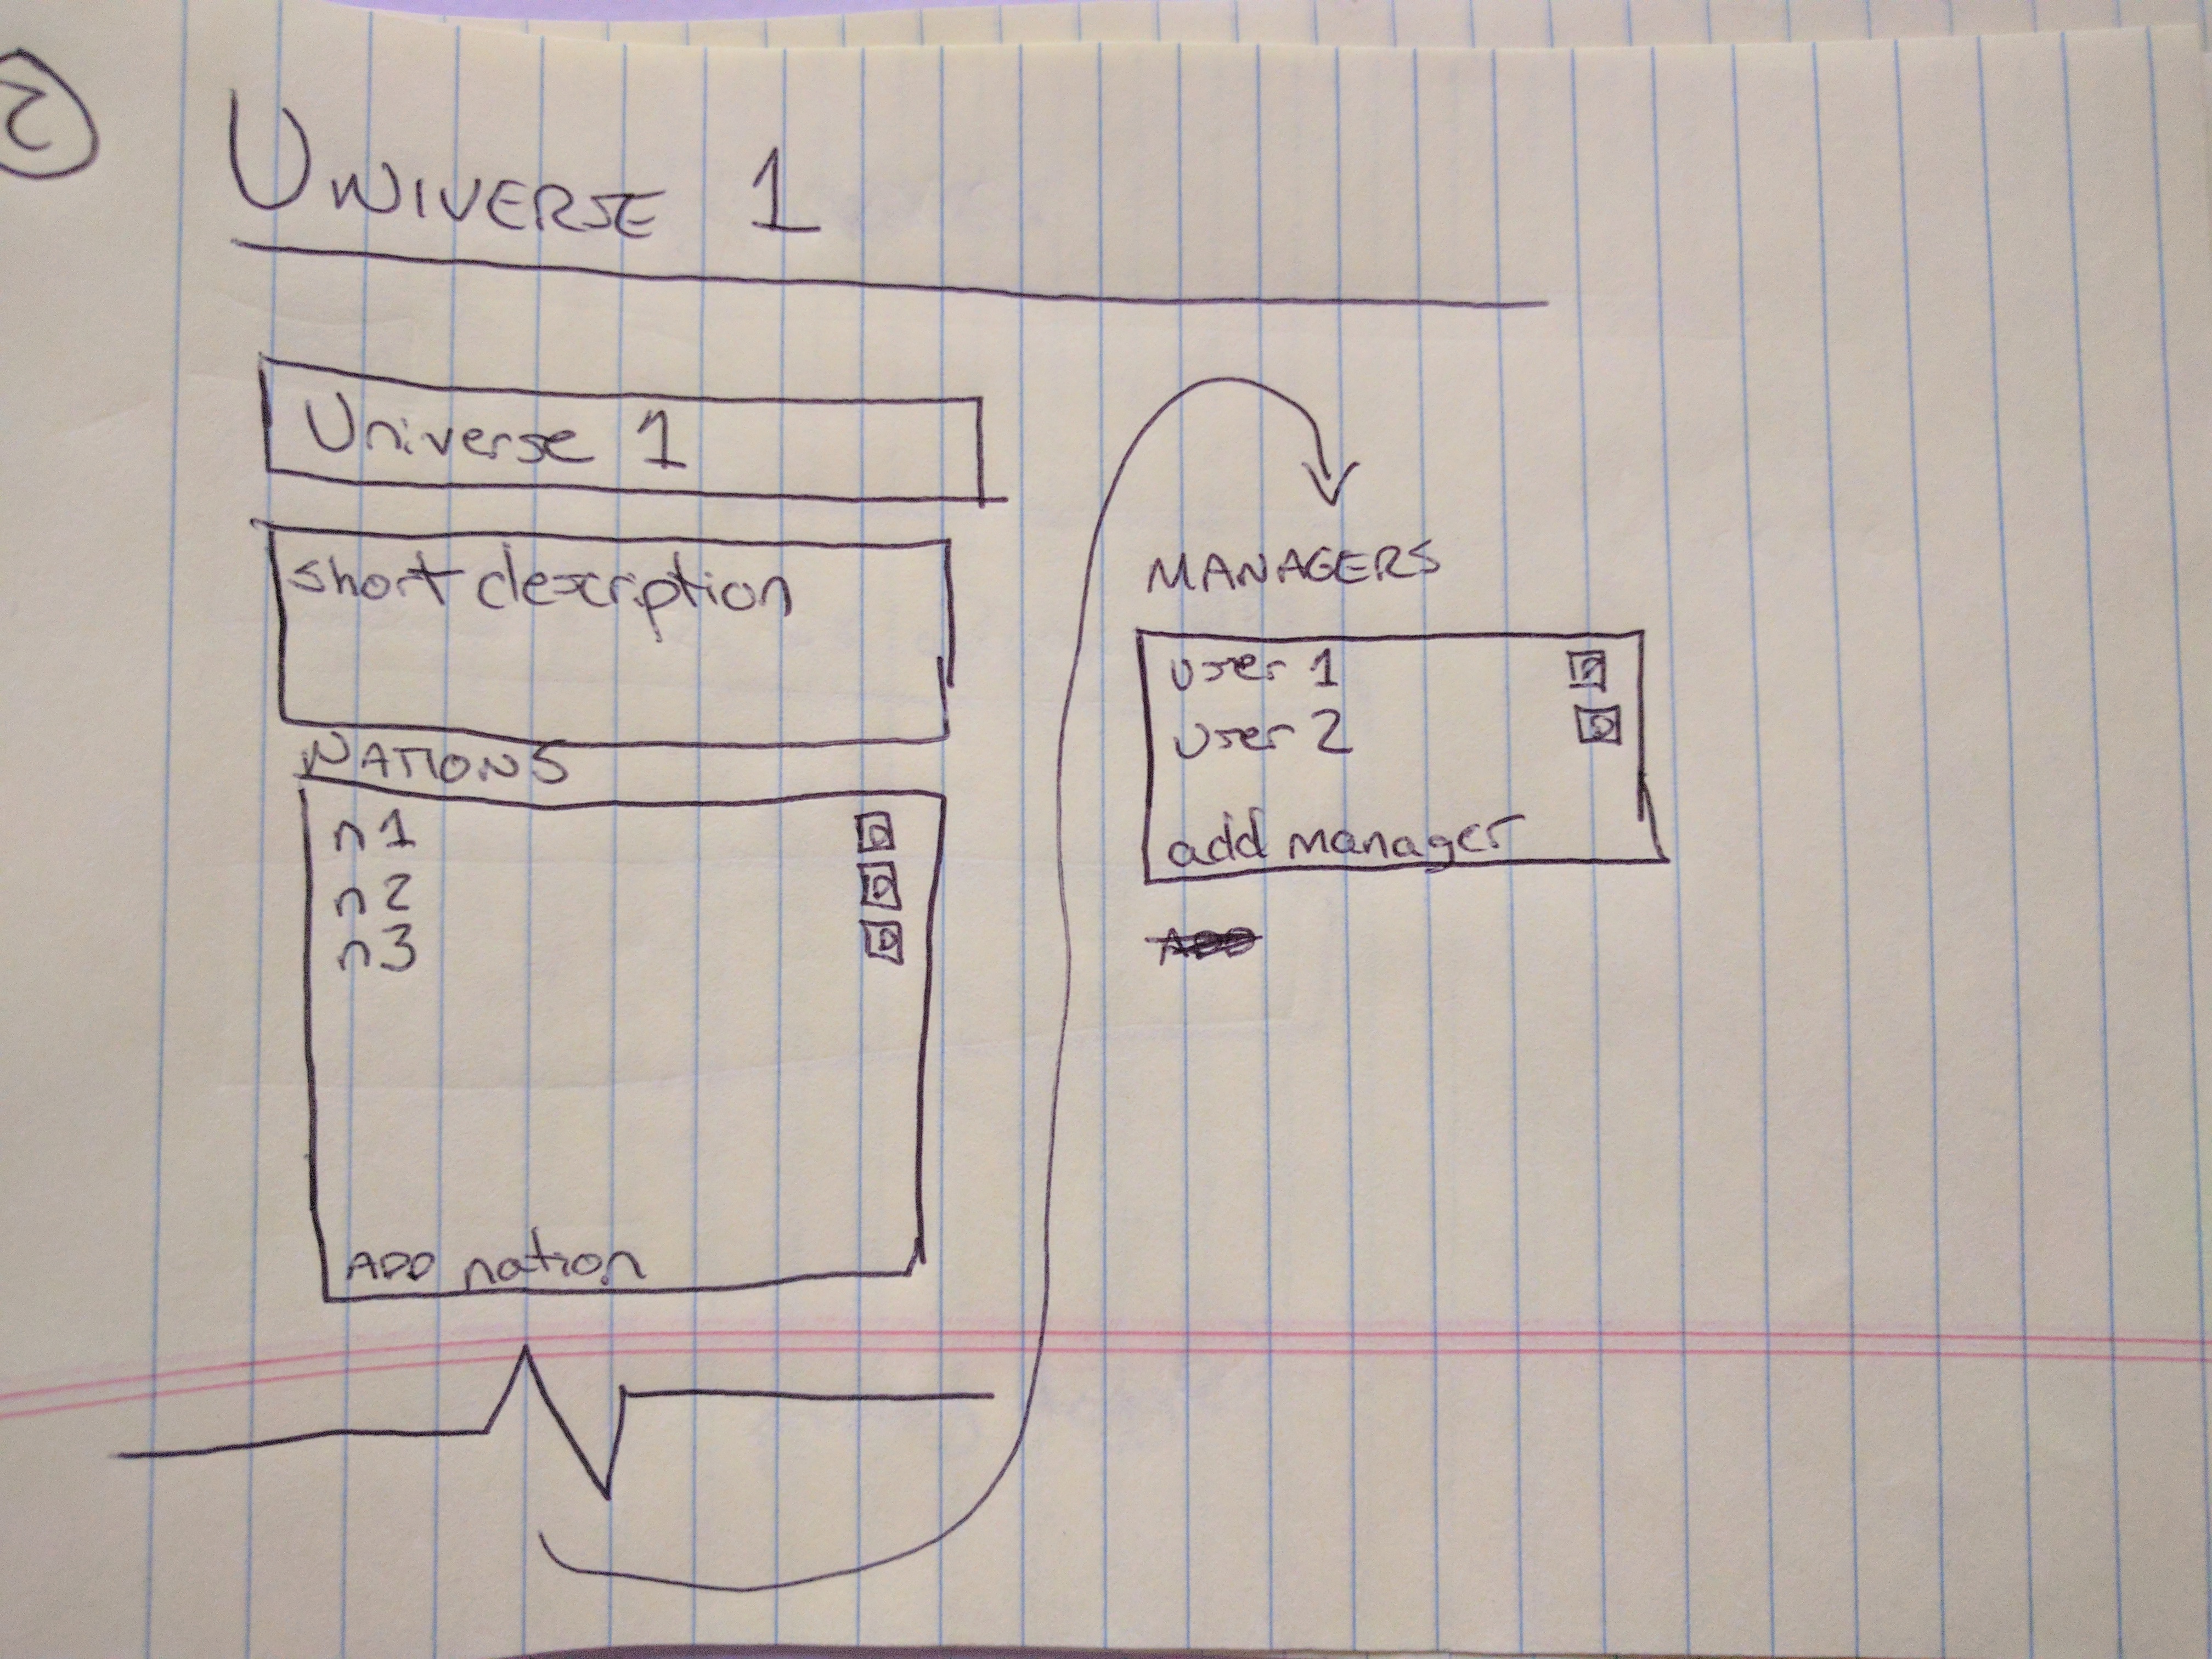 2
UNIVERSE 1
Universe 1
short description
NATIONS
n1
n2
n3
ADD nation
MANAGERS
user 1
user 2
add manager